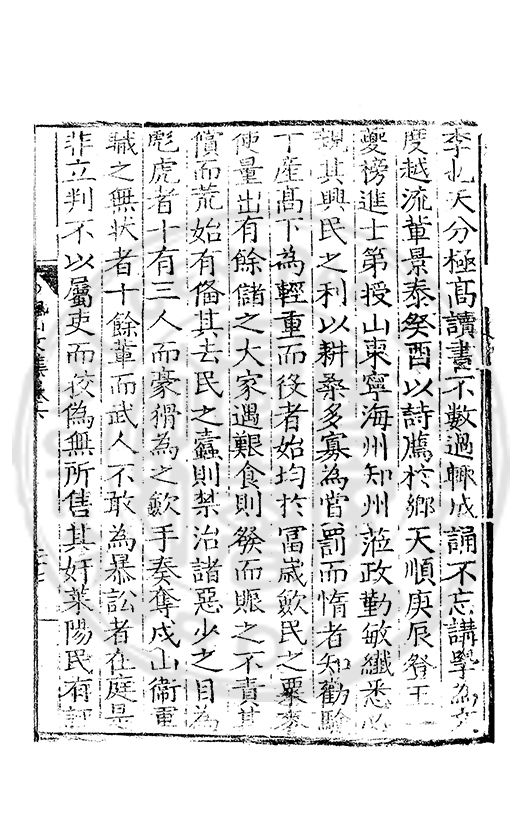 李也天分極高讀書不數過輒成誦不忘講學為文
度越流軰景泰癸酉以詩薦於鄉天順庚辰登王
夔榜進士第授山東寧海州知州蒞政勤敏纖悉必
親其興民之利以耕桑多寡為嘗罰而惰者知勸驗
丁產髙下為輕重而役者始均於冨歳歛民之粟麥
使量出有餘儲之大家遇艱食則發而賑之不責其
償而荒始有俻其去民之蠧則禁治諸惡少之目為
彪虎者十有三人而豪猾為之歛手奏奪成山衞軍
職之無狀者十餘軰而武人不敢為暴訟者在庭是
非立判不以屬吏而狡偽無所售其奸萊陽民有
文集卷六